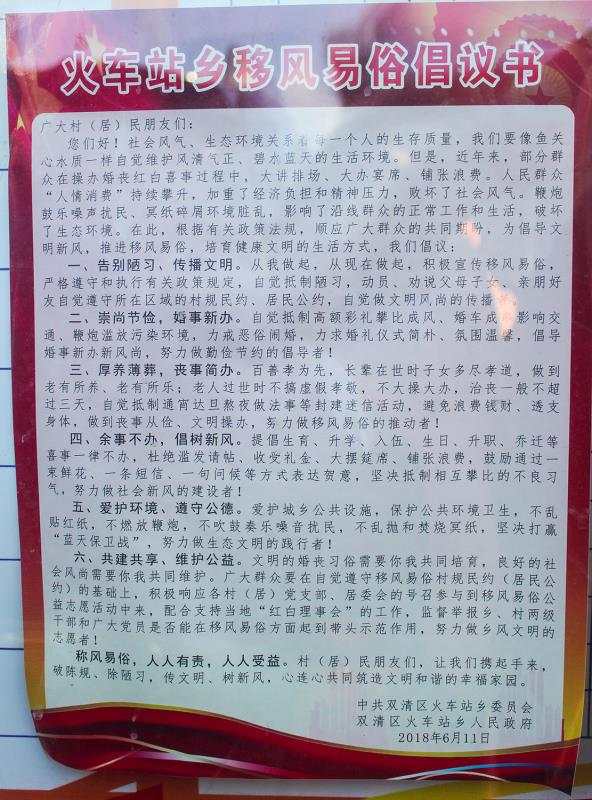 火车站乡移风易俗倡议书
广大村（居）民朋友们：
您们好！社会风气、生态环境关系着每一个人的生存质量，我们要像鱼关
心水质一样自觉维护风清气正、碧水蓝天的生活环境。但是，近年来，部分群
众在操办婚丧红白喜事过程中，大讲排场、大办宴席、铺张浪费。人民群众
“人情消费”持续攀升，加重了经济负担和精神压力，败坏了社会风气。鞭炮
鼓乐噪声扰民、冥纸碎屑环境脏乱，影响了沿线群众的正常工作和生活，破坏
了生态环境。在此，根据有关政策法规，顺应广大群众的共同期盼，为倡导文
明新风，推进移风易俗，培育健康文明的生活方式，我们倡议：
一、告别陋习、传播文明。从我做起，从现在做起，积极宣传移风易俗，
严格遵守和执行有关政策规定，自觉抵制陋习，动员、劝说父母子女、亲朋好
友自觉遵守所在区域的村规民约、居民公约，自觉做文明风尚的传播者。
二、崇尚节俭，婚事新办。自觉抵制高额彩礼攀比成风、婚车成队影响交
通、鞭炮滥放污染环境，力戒恶俗闹婚，力求婚礼仪式简朴、氛围温馨，倡导
婚事新办新风尚，努力做勤俭节约的倡导者！
三、厚养薄葬，丧事简办。百善孝为先，长辈在世时子女多尽孝道，做到
老有所养、老有所乐；老人过世时不搞虚假孝敬，不大操大办，治丧一般不超
过三天，自觉抵制通宵达旦熬夜做法事等封建迷信活动，避免浪费钱财、透支
身体，做到丧事从俭、文明操办，努力做移风易俗的推动者！
四、余事不办，倡树新风。提倡生育、升学、入伍、生日、升职、乔迁等
喜事一律不办，杜绝滥发请帖、收受礼金、大摆筵席、铺张浪费，鼓励通过一
束鲜花、一条短信、一句问候等方式表达贺意，坚决抵制相互攀比的不良习
气，努力做社会新风的建设者！
五、爱护环境、遵守公德。爱护城乡公共设施，保护公共环境卫生，不乱
贴红纸，不燃放鞭炮，不吹鼓奏乐噪音扰民，不乱抛和焚烧冥纸，坚决打赢
“蓝天保卫战”，努力做生态文明的践行者！
六、共建共享、维护公益。文明的婚丧习俗需要你我共同培育，良好的社
会风尚需要你我共同维护。广大群众要在自觉遵守移风易俗村规民约（居民公
约）的基础上，积极响应各村（居）党支部、居委会的号召参与到移风易俗公
益志愿活动中来，配合支持当地“红白理事会”的工作，监督举报乡、村两级
干部和广大党员是否能在移风易俗方面起到带头示范作用，努力做乡风文明的
志愿者！
称风易俗，人人有责，人人受益。村（居）民朋友们，让我们携起手来，
破陈规、除陋习，传文明、树新风，心连心共同筑造文明和谐的幸福家园。
中共双清区火车站乡委员会
双清区火车站乡人民政府
2018年6月11日